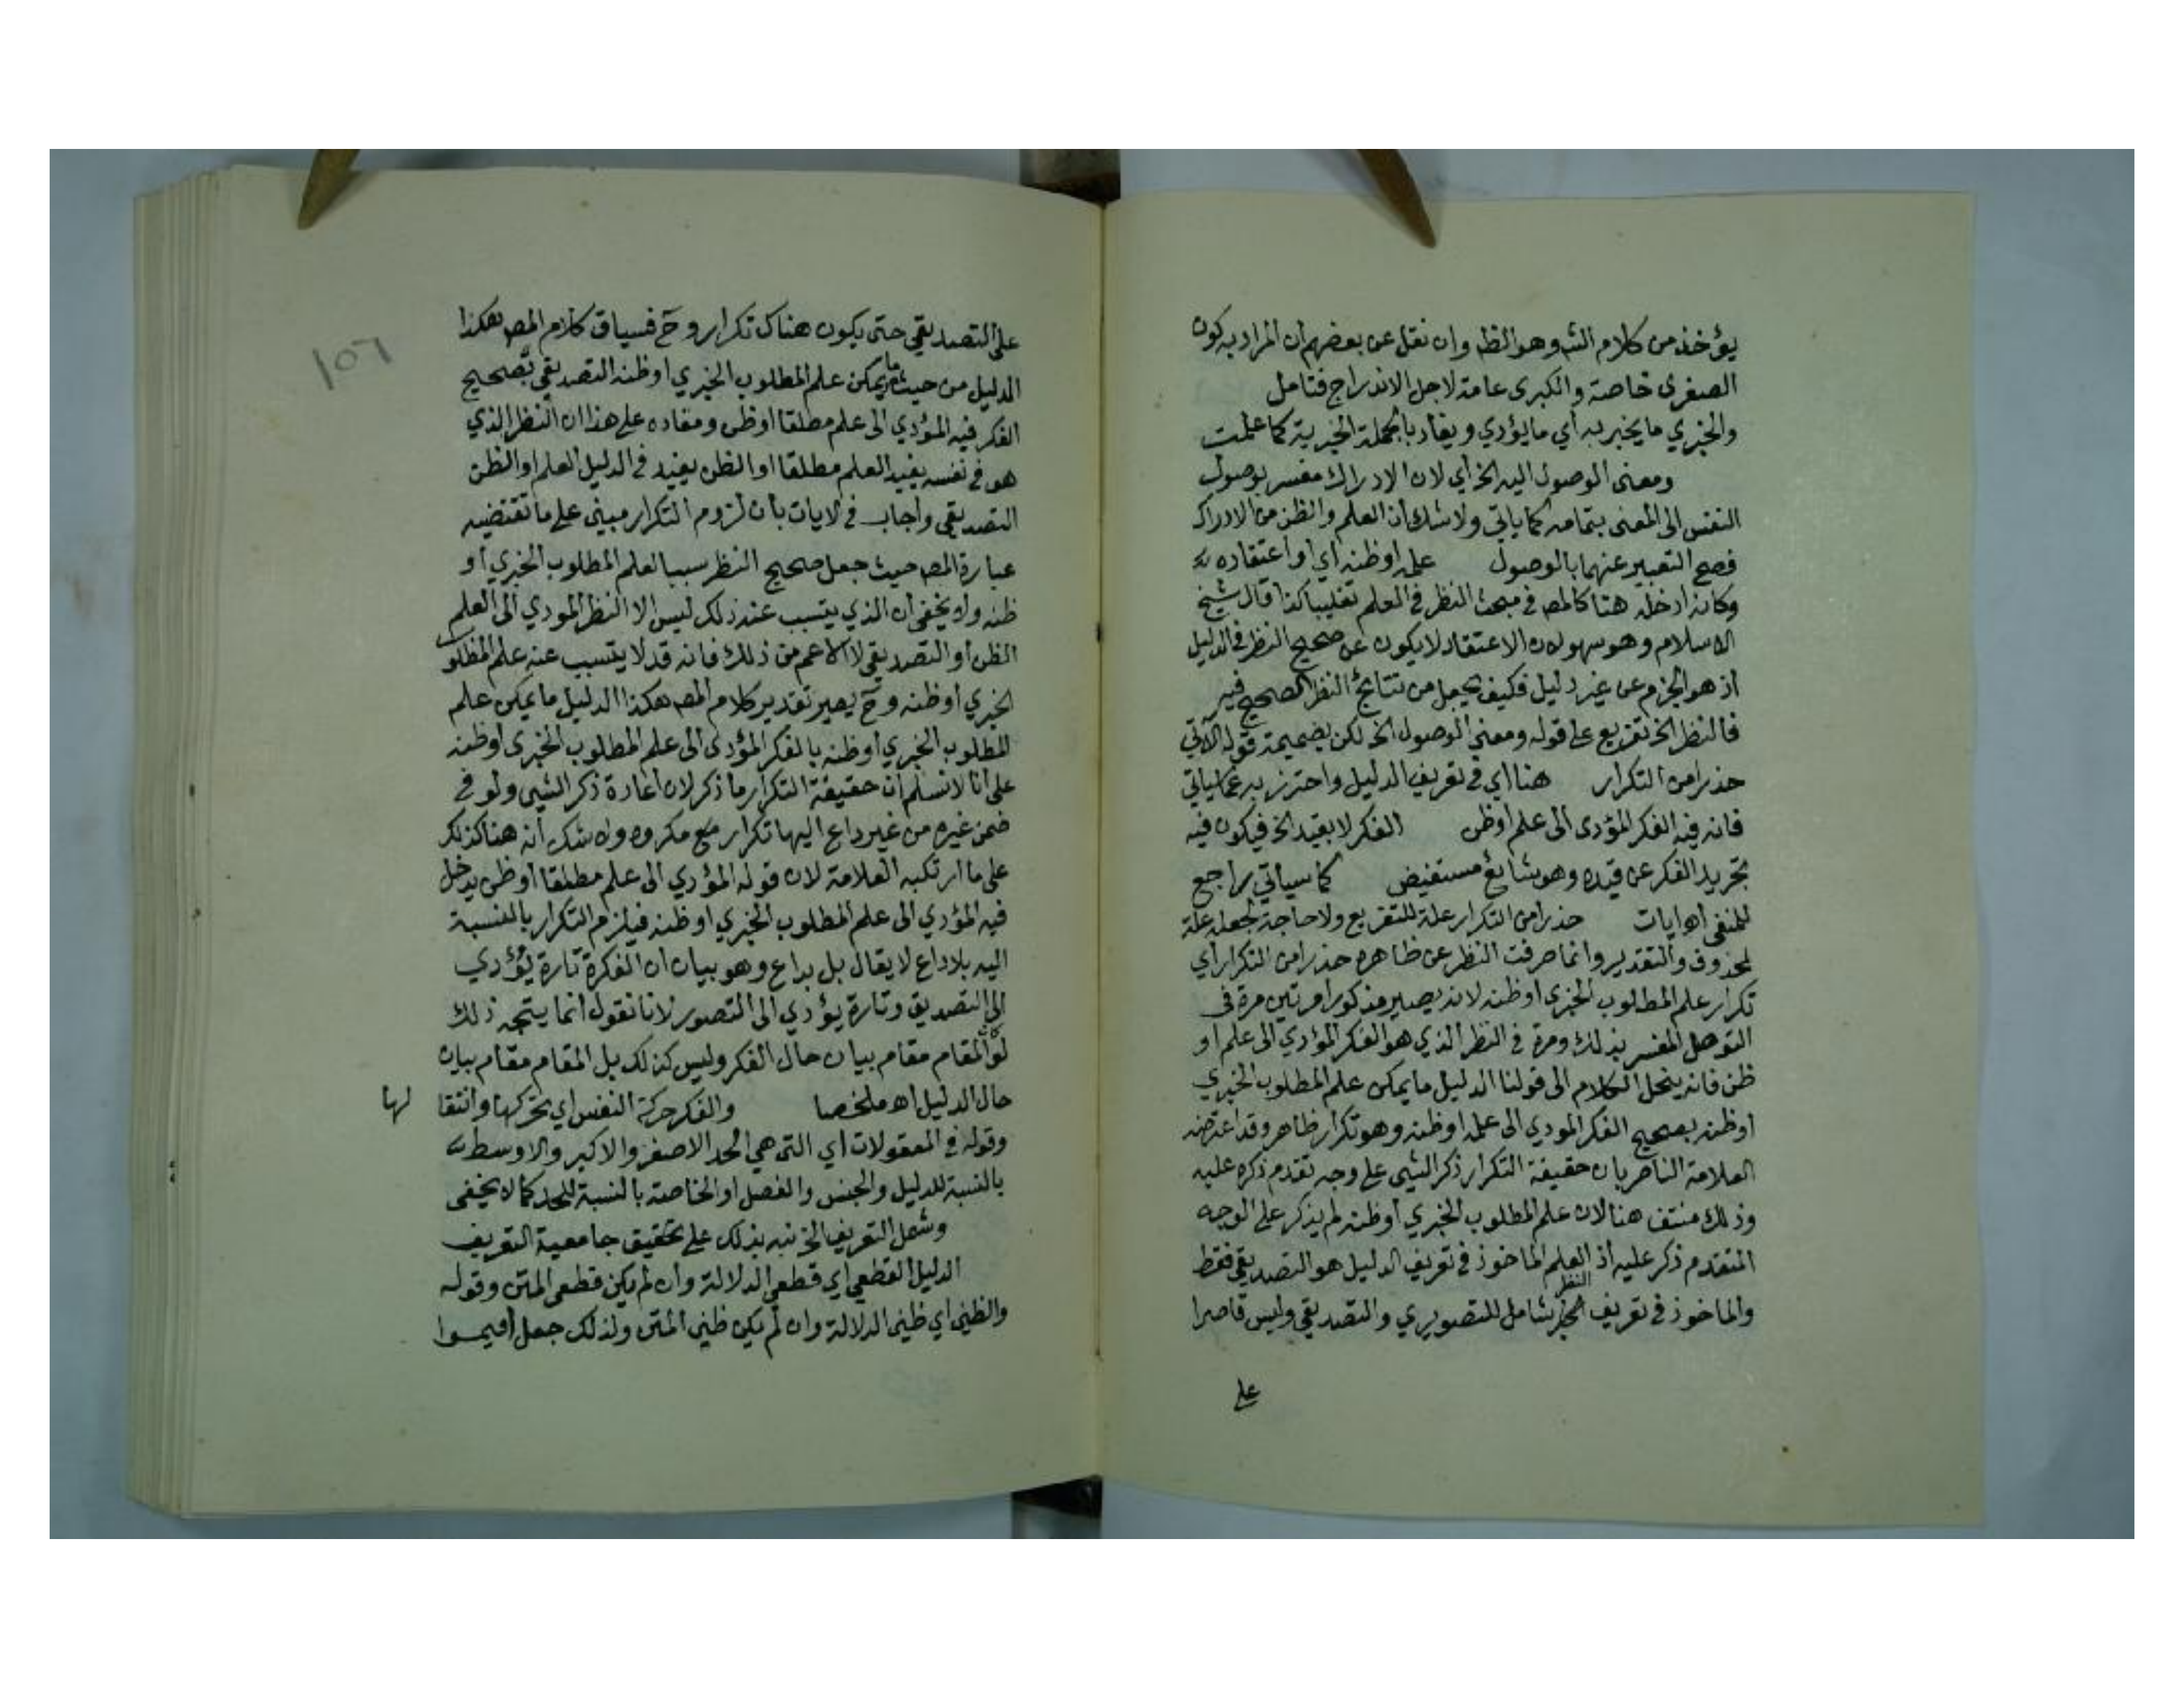 يؤخذ من كلام الشـ وهو الظـ وان نقل عن بعضهم ان المراد به كون
الصغرى خاصة والكبرى عامة لاجل الاندراج فتامل
والخبري ما يخبر به أي ما يؤدي ويفاد بالجملة الخبرية كما علمت
ومعنى الوصول اليه الخ أي لان الادراك مفسر بوصول
النفس الى المعنى بتمامه كما ياتي ولا شك أن العلم والظن من الادراك
فصح التعبير عنهما بالوصول علمه اوظنه أي او اعتقاده
وكانه ادخله هنا كالمصـ في مبحث النظر في العلم تغليبا كذا قال شيخ
الاسلام وهو سهو لان الاعتقاد لا يكون عن صحيح النظر في الدليل
اذ هو الجزم عن غير دليل فكيف يجعل من نتائج النظر الصحيح فيه
فالنظر الخ تفريع على قوله ومعنى الوصول الخ لكن بضميمة قوله الآتي
حذرا من التكرار هنا اي في تعريف الدليل واحترز به عما ياتي
فانه فيه الفكر المؤدى الى علم اوظن الفكر لا بقيد الخ فيكون فيه
تجريد الفكر عن قيده وهو شائع مستفيض كما سياتي راجع
للمنفى اهـ ايات حذرا من التكرار علة للتفريع ولا حاجة لجعله علة
لمحذوف والتقدير وانما صرفت النظر عن ظاهره حذرا من التكرار أي
تكرار علم المطلوب الخبرى اوظنه لانه يصير مذكورا مرتين مرة في
التوصل المفسر بذلك ومرة في النظر الذي هو الفكر المؤدي الى علم او
ظن فانه ينحل الكلام الى قولنا الدليل ما يمكن علم المطلوب الخبري
اوظنه بصحيح الفكر المودي الى علمه اوظنه وهو تكرار ظاهر وقد اعترضه
العلامة الناصر بان حقيقة التكرار ذكر الشيى على وجه تقدم ذكره عليه
وذلك منتف هنا لان علم المطلوب الخبري أوظنه لم يذكر على الوجه
المتقدم ذكر عليه أذ العلم الماخوذ في تعريف الدليل هو التصديقي فقط
والماخوذ في تعريف النظر شامل للتصويري والتصديقي وليس قاصرا
على
١٥٦
على التصديقي حتى يكون هناك تكرار وحَ فسياق كلام المصـ هكذا
الدليل من حيث ما يمكن علم المطلوب الخبري اوظنه التصديقي بصحيح
الفكر فيه المؤدي الى علم مطلقا اوظن ومفاده على هذا ان النظر الذي
هو في نفسه يفيد العلم مطلقا او الظن يفيد في الدليل العلم او الظن
التصديقي واجاب في الايات بان لزوم التكرار مبني على ما تقتضيه
عبارة المصـ حيث جعل صحيح النظر سببا لعلم المطلوب الخبري أو
ظنه ولا يخفى ان الذي يتسبب عنه ذلك ليس الا النظر المودي الى العلم
الظن أو التصديقي لا الاعم من ذلك فانه قد لا يتسبب عنه علم المطلوب
الخبري أوظنه وحَ يصير تقدير كلام المصـ هكذا الدليل ما يمكن علم
المطلوب الخبري أوظنه بالفكر المؤدى الى علم المطلوب الخبرى أوظنه
على أنا لا نسلم أن حقيقة التكرار ما ذكر لان اعادة ذكر الشيى ولو في
ضمن غيره من غير داع اليها تكرار مع مكروه ولا شك أنه هنا كذلك
على ما ارتكبه العلامة لان قوله المؤدي الى علم مطلقا أوظن يدخل
فيه المؤدي الى علم المطلوب الخبري اوظنه فيلزم التكرار بالنسبة
اليه بلا داع لا يقال بل بداع وهو بيان ان الفكرة تارة يؤدي
الى التصديق وتارة يؤدي الى التصور لانا نقول انما يتجه ذلك
لو أن المقام مقام بيان حال الفكر وليس كذلك بل المقام مقام بيان
حال الدليل اهـ ملخصا والفكر حركة النفس اي تحركها وانتقا لها
وقوله في المعقولات أي التي هي الحد الاصغر والاكبر والاوسط
بالنسبة للدليل والجنس والفصل او الخاصة بالنسبة للحد كما لا يخفى
وشمل التعريف الخ نبه بذلك على تحقيق جامعية التعريف
الدليل القطعي اي قطعي الدلالة وان لم يكن قطعى المتن وقوله
والظني اي ظني الدلالة وان لم يكن ظني المتن ولذلك جعل أقيموا